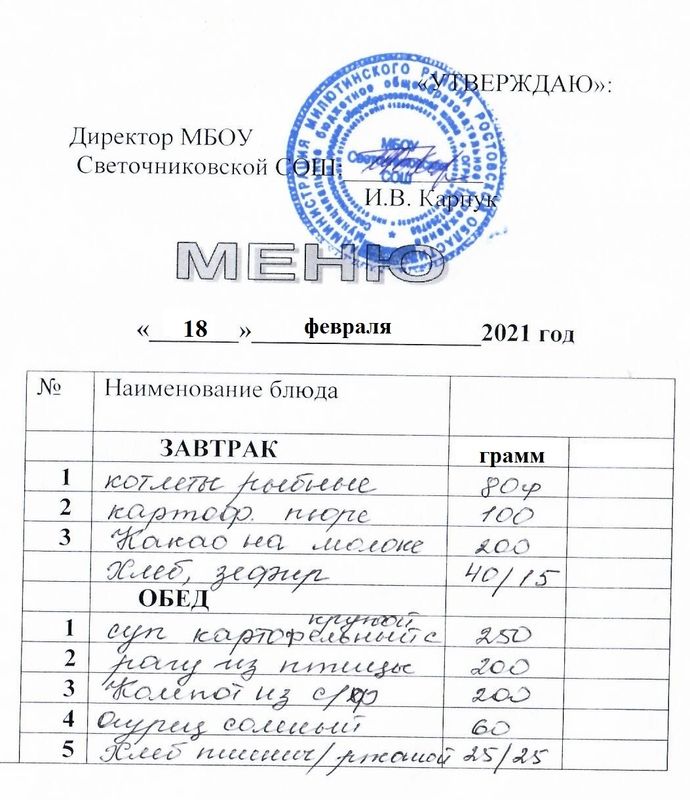 «УТВЕРЖДАЮ»:
Директор МБОУ
Светочниковской СОШ:
МБОУ
Светочниковская
СОШ
И.В. Карпук
МЕНЮ
« 18 » февраля 2021 год
№ Наименование блюда
ЗАВТРАК грамм
1 котлеты рыбные 80
2 картоф. пюре 100
3 Какао на молоке 200
Хлеб, зефир 40/15
ОБЕД
крупой
1 суп картофельный с 250
2 рагу из птицы 200
3 Компот из с/ф 200
4 огурец соленый 60
5 Хлеб пшенич/ржаной 25/25